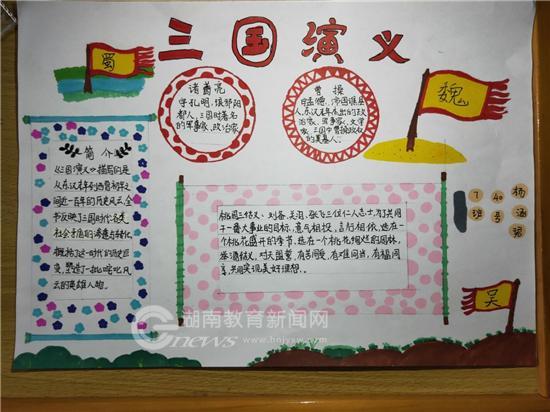 三国演义
蜀
诸葛亮
字孔明,琅邪阳
都人,三国时著名
的军事家,政治家
曹操
字孟德,沛国谯县
人,东汉末年杰出的政
治家、军事家、文学
家、三国中曹魏政权
的奠基人。
魏
简介
《三国演义》描写的是
从东汉末年到西晋初年之
间近一百年的历史风云,全
书反映了三国时代各类
社会矛盾的
概括了这一时代的历史巨
变,塑造了一批叱咤风
云的英雄人物。
桃园三结义、刘备、关羽、张飞三位仁人志士,为了共同
干一番大事业的目标,意气相投,言行相依,选在
个桃花盛开的季节,选在一个桃花绚烂的园林,
举酒结义,对天盟誓,有苦同受,有难同当,有福同
享,共同实现美好理想。
7
班
40
号
杨
涵
吴
湖南教育新闻网
news
www.hnjyxw.com